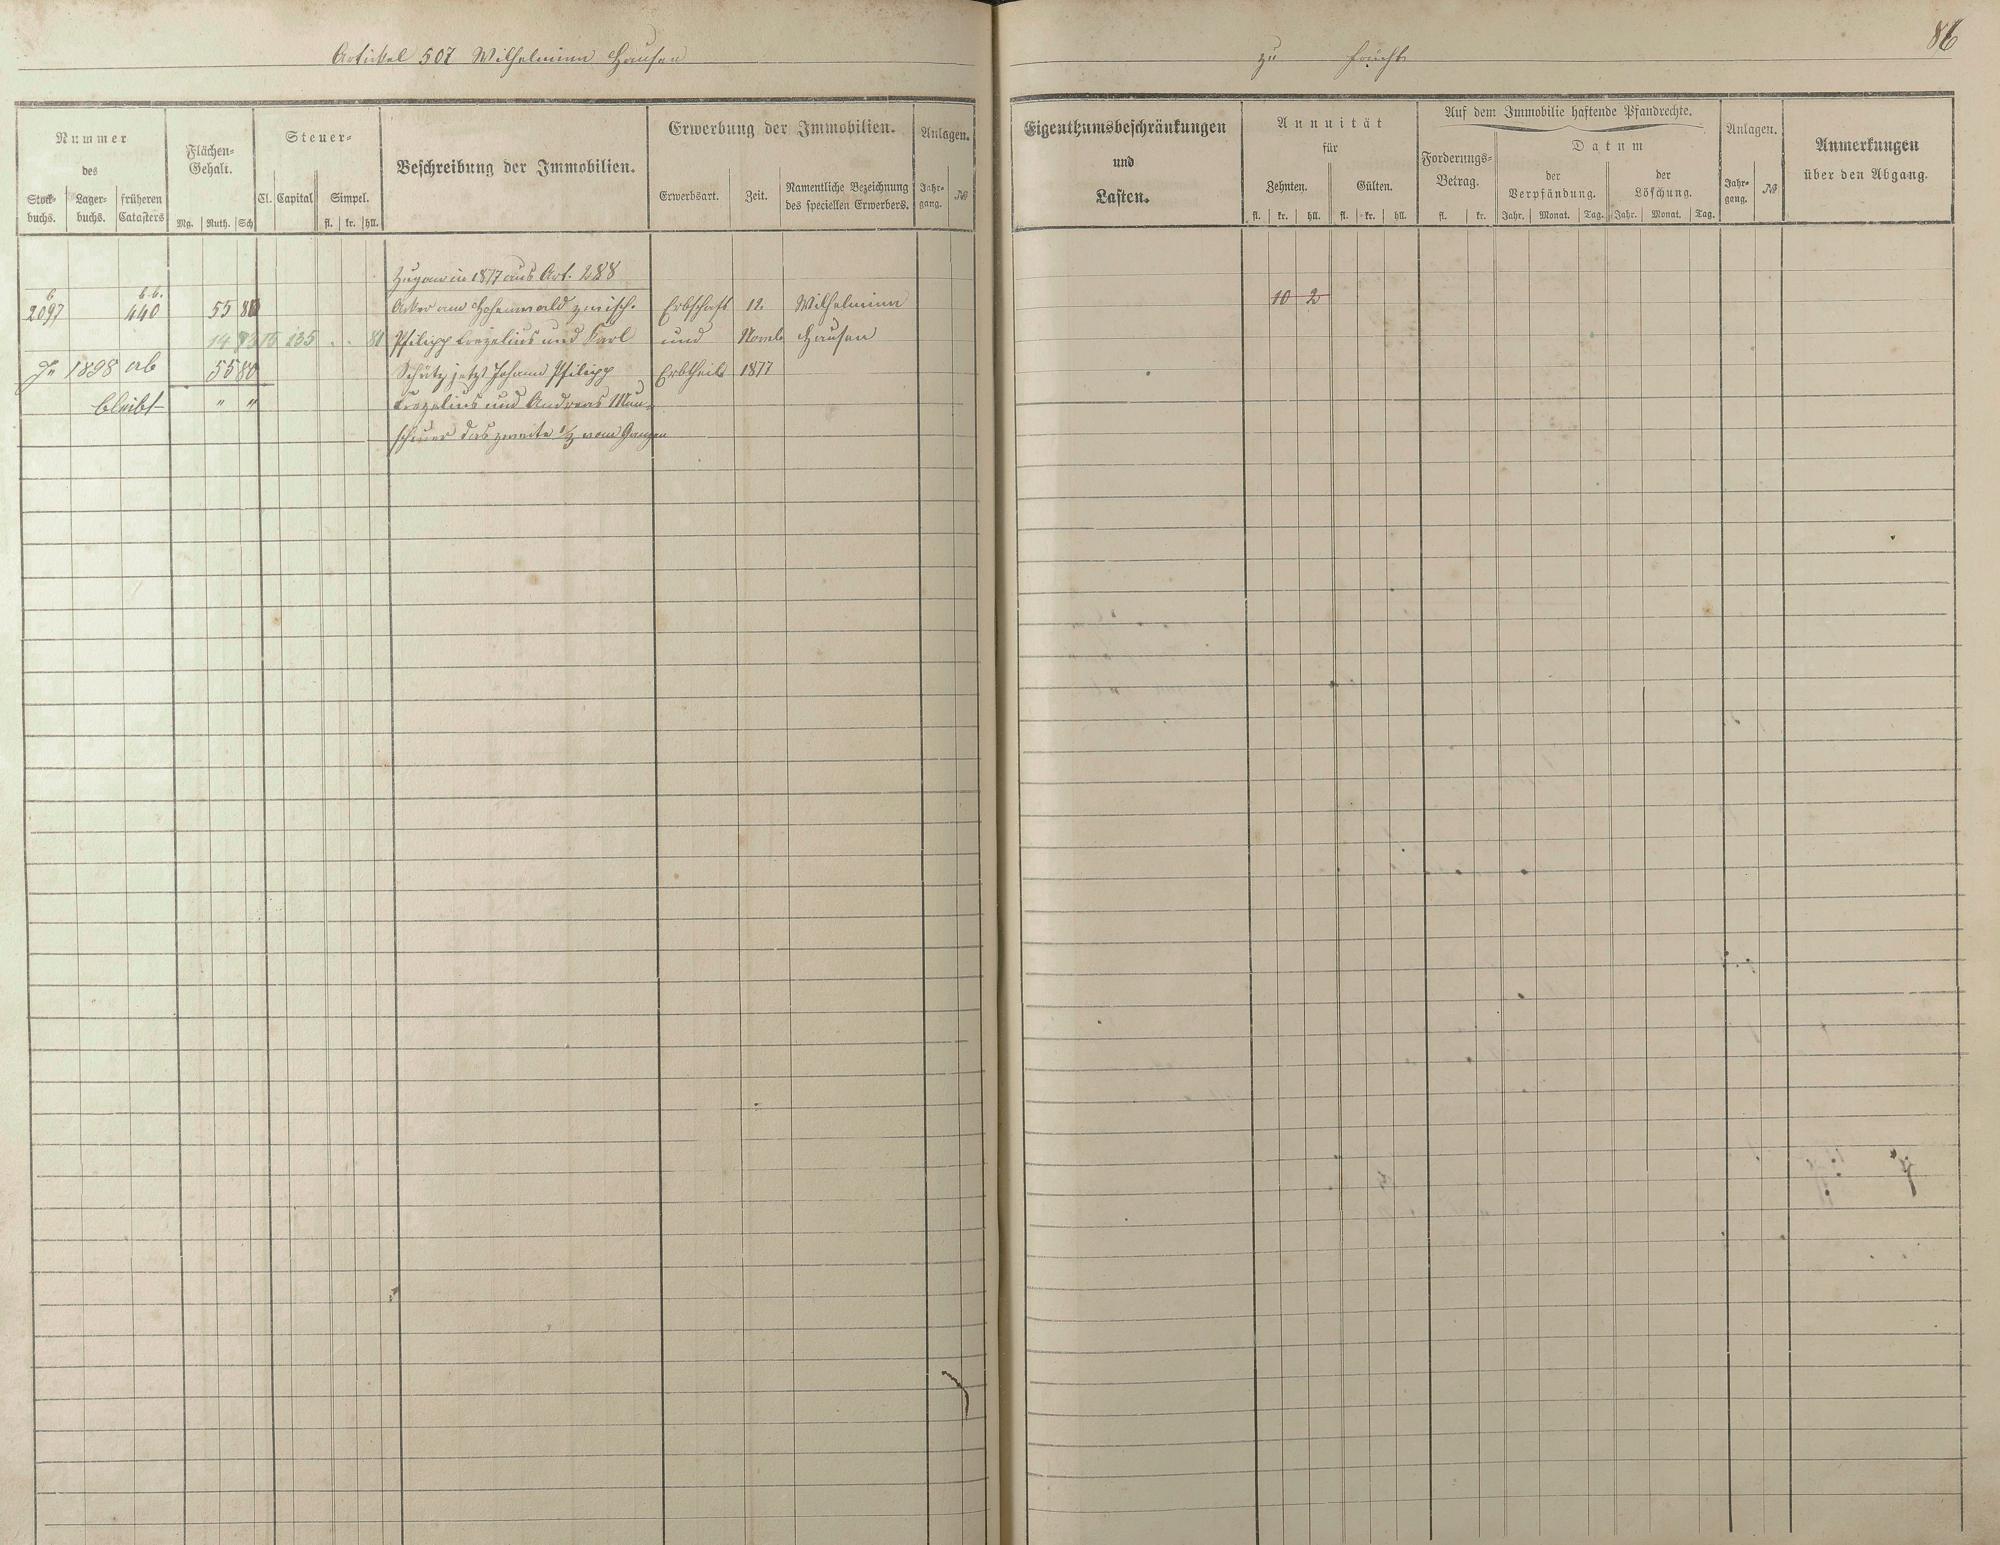 Artikel 507 Wilhelmina Hausen
zu Frücht
86
Nummer
des
Stock-
buchs.
Lager-
buchs.
früheren
Catasters
Flächen-
Gehalt.
Mg. Ruth. Sch
Steuer-
Cl. Capital Simpel.
fl. kr. hll.
Beschreibung der Immobilien.
Erwerbung der Immobilien.
Erwerbsart. Zeit.
Namentliche Bezeichnung
des speciellen Erwerbers.
Anlagen.
Jahr-
gang.
№
Eigenthumsbeschränkungen
und
Lasten.
Annuität
für
Zehnten. Gülten.
fl. kr. hll. fl. kr. hll.
Auf dem Immobilie haftende Pfandrechte.
Forderungs-
Betrag.
fl. kr.
Datum
der
Verpfändung.
der
Löschung.
Jahr. Monat. Tag. Jahr. Monat. Tag.
Anlagen.
Jahr-
gang.
№
Anmerkungen
über den Abgang.
Zugang in 1877 aus Art. 288
6 6.6.
2097 440 55 80 Acker am Hohenwald zwisch. Erbschaft 12. Wilhelmina 10 2
235 81 Philipp und Karl und Novlr. Hausen
In 1898 ab 55 80 Schütz jetzt Johann Philipp Erbtheil 1877
bleibt " " und Andreas Mau-
scheuer das zweite ½ vom Ganzen